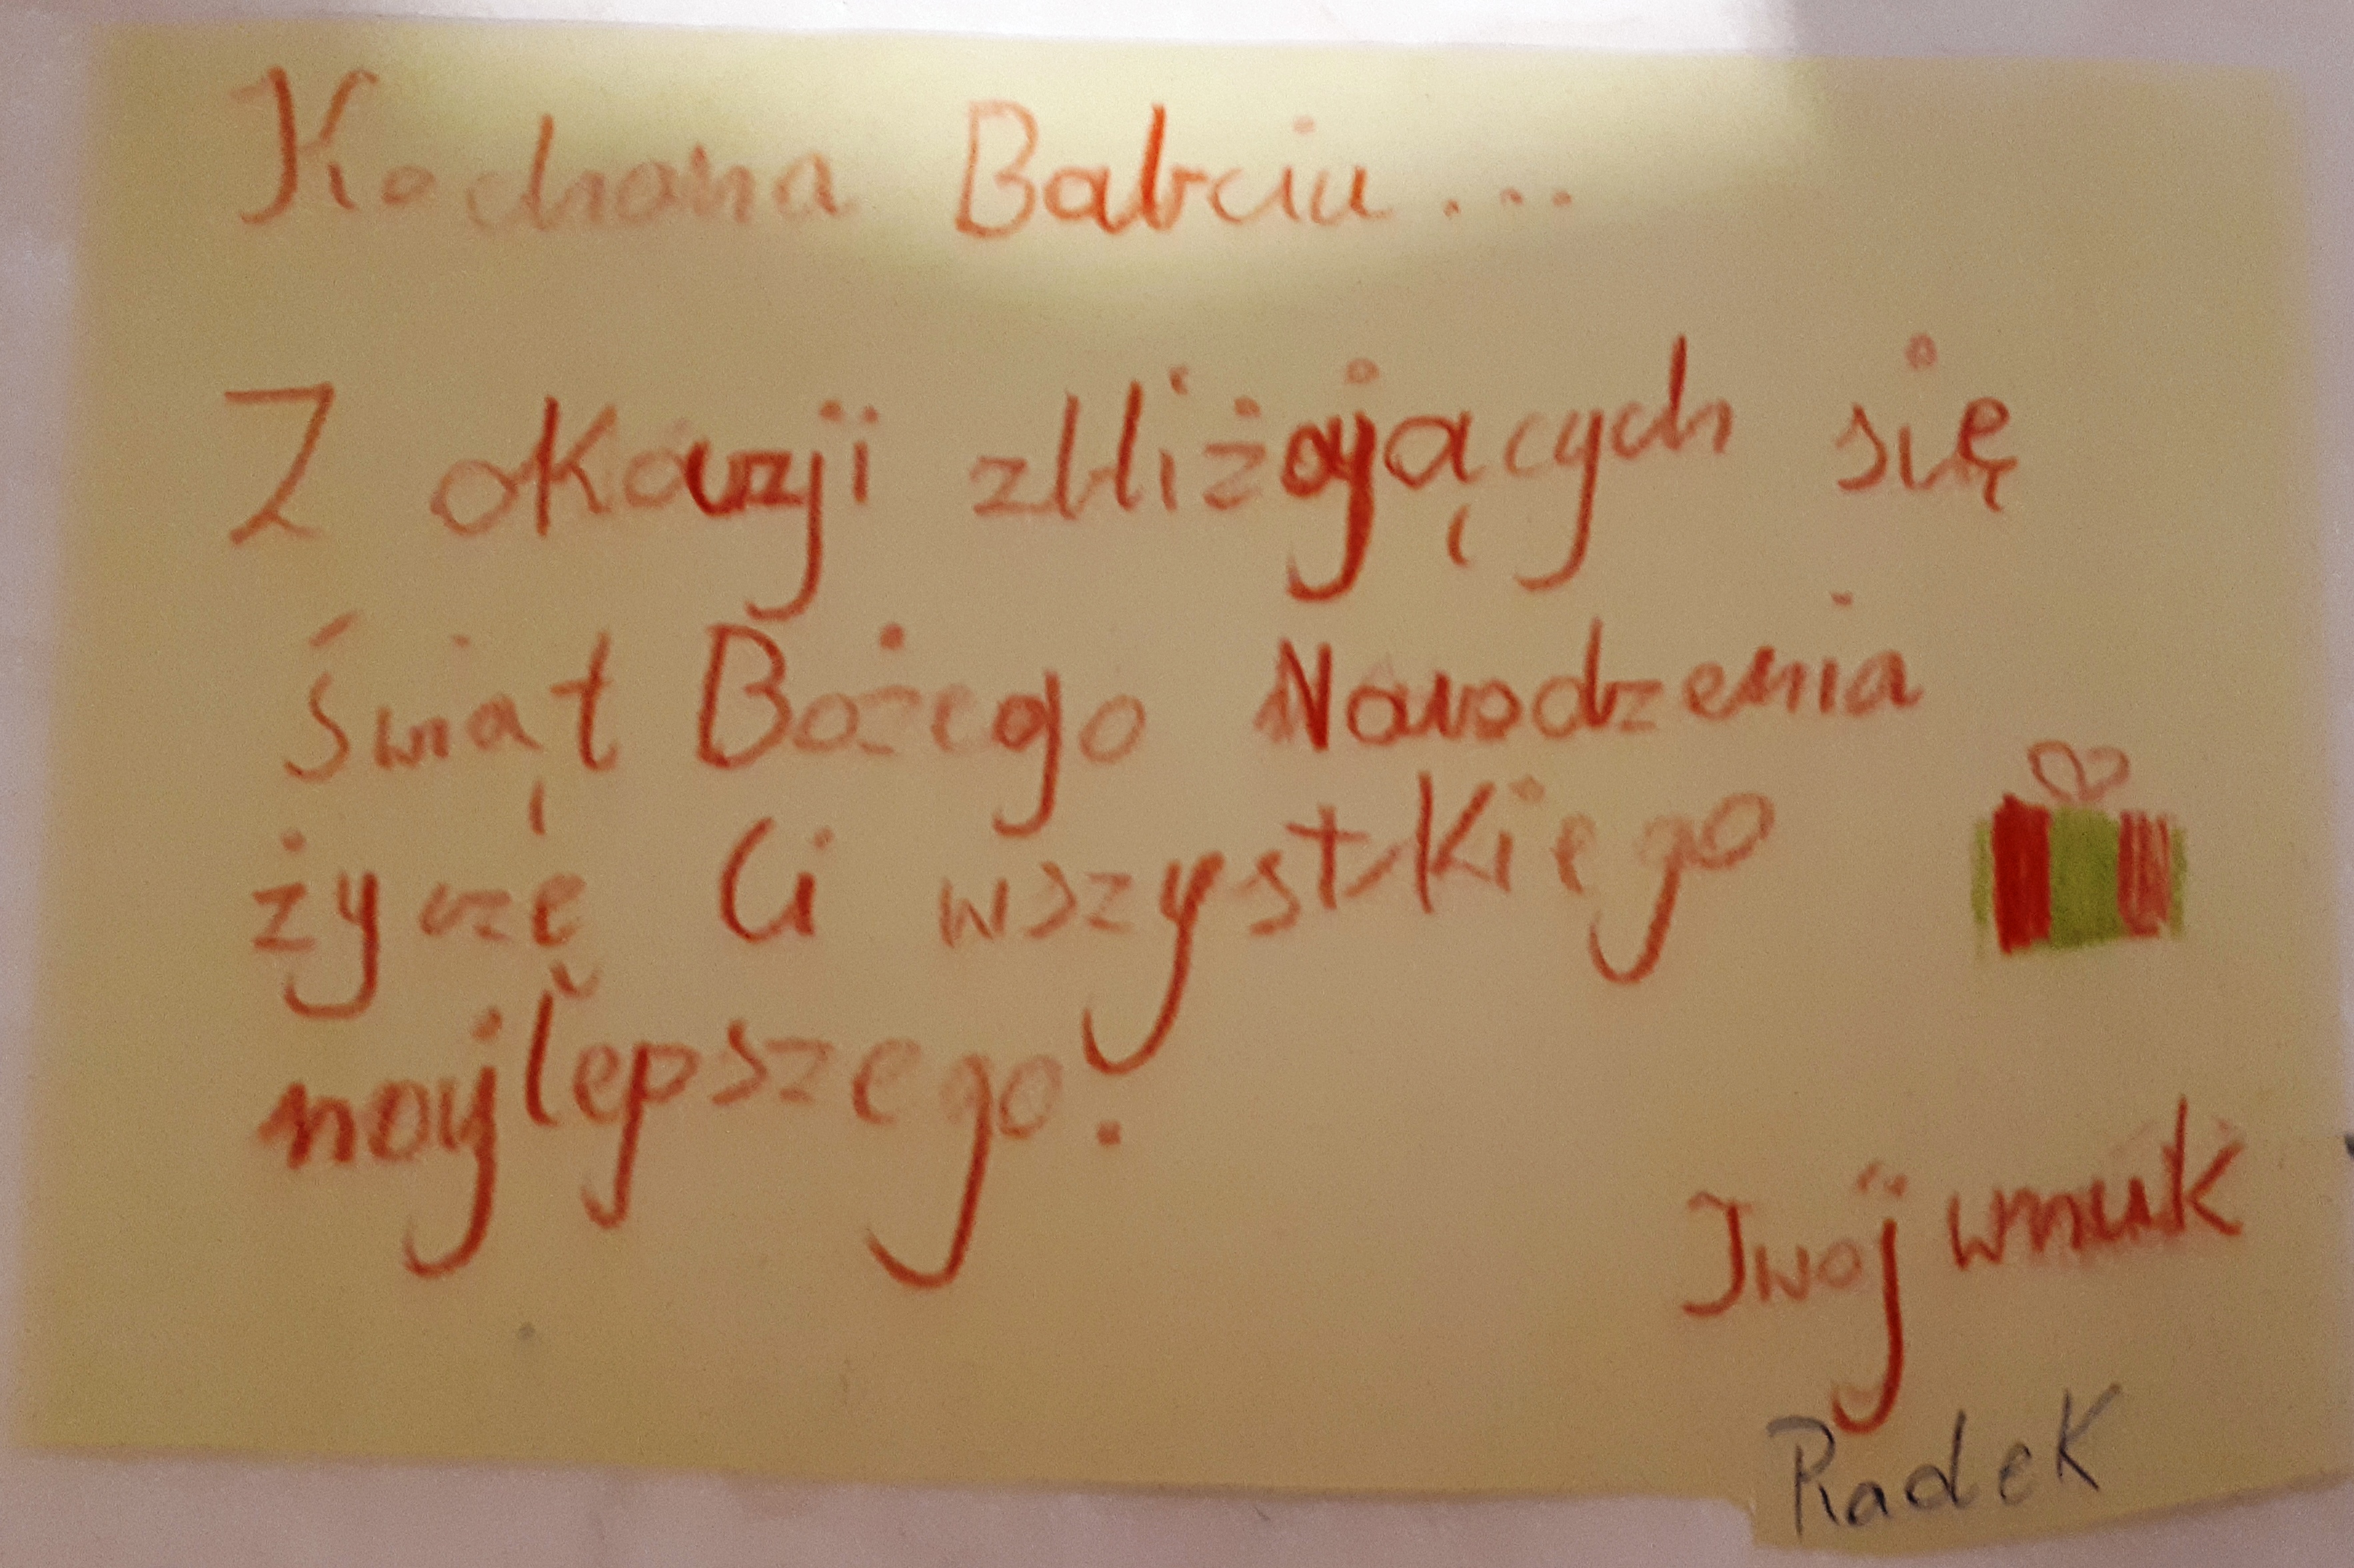 Kochana Babciu...
Z okazji zbliżających się
Świąt Bożego Narodzenia
życzę Ci wszystkiego
najlepszego.
Twój wnuk
Radek